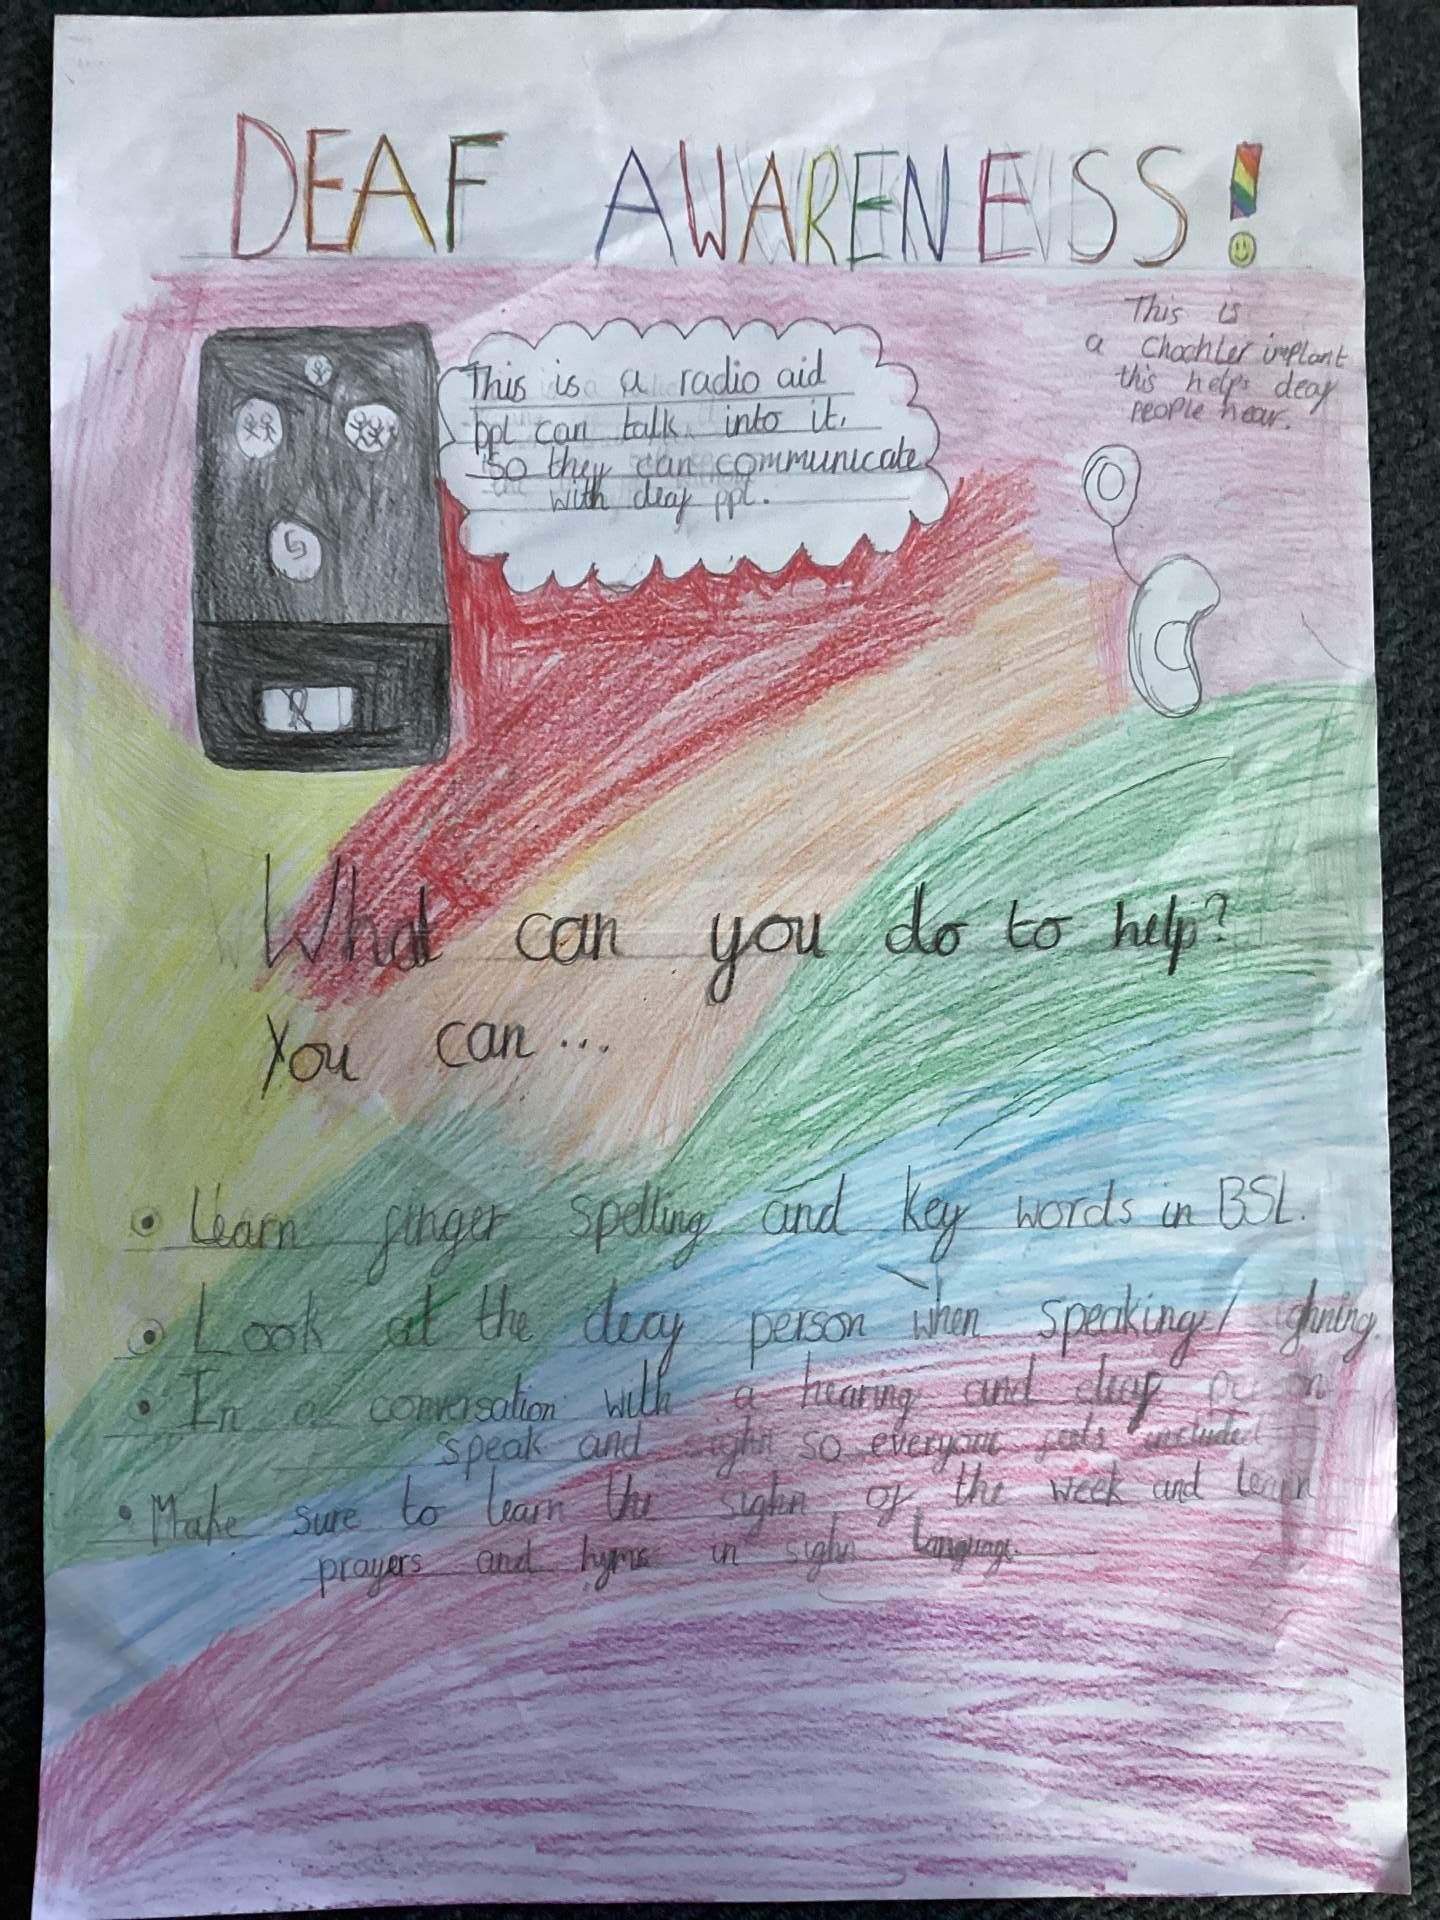 DEAF AWARENESS!
This is a radio aid
ppl can talk into it.
so they can communicate
with deaf ppl.
This is
a Chochler implant
this helps deaf
people hear.
What can you do to help?
You can...
Learn finger spelling and key words in BSL.
Look at the deaf person when speaking/ighning.
In a conversation with a hearing and deaf person
speak and sighn so everyone feels included
Make sure to learn the sighn of the week and learn
prayers and hyms in sighn language.